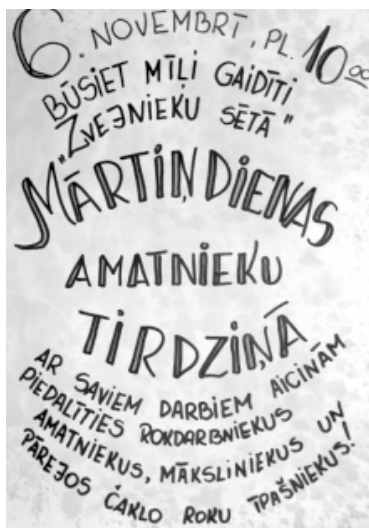 6. NOVEMBRĪ, PL. 10⁰⁰
BŪSIET MĪĻI GAIDĪTI
"ZVEJNIEKU SĒTĀ"
MĀRTIŅDIENAS
AMATNIEKU
TIRDZIŅĀ
AR SAVIEM DARBIEM AICINĀM
PIEDALĪTIES ROKDARBNIEKUS
AMATNIEKUS, MĀKSLINIEKUS UN
PĀREJOS ČAKLO ROKU ĪPAŠNIEKUS!